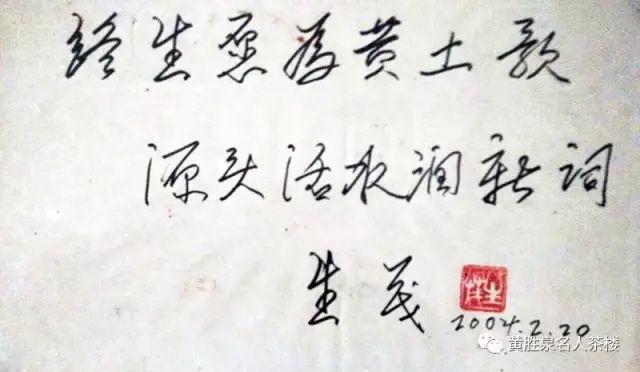 终生愿为黄土歌
源头活水润新词
生茂
生茂
2004.2.20
黄胜泉名人茶楼